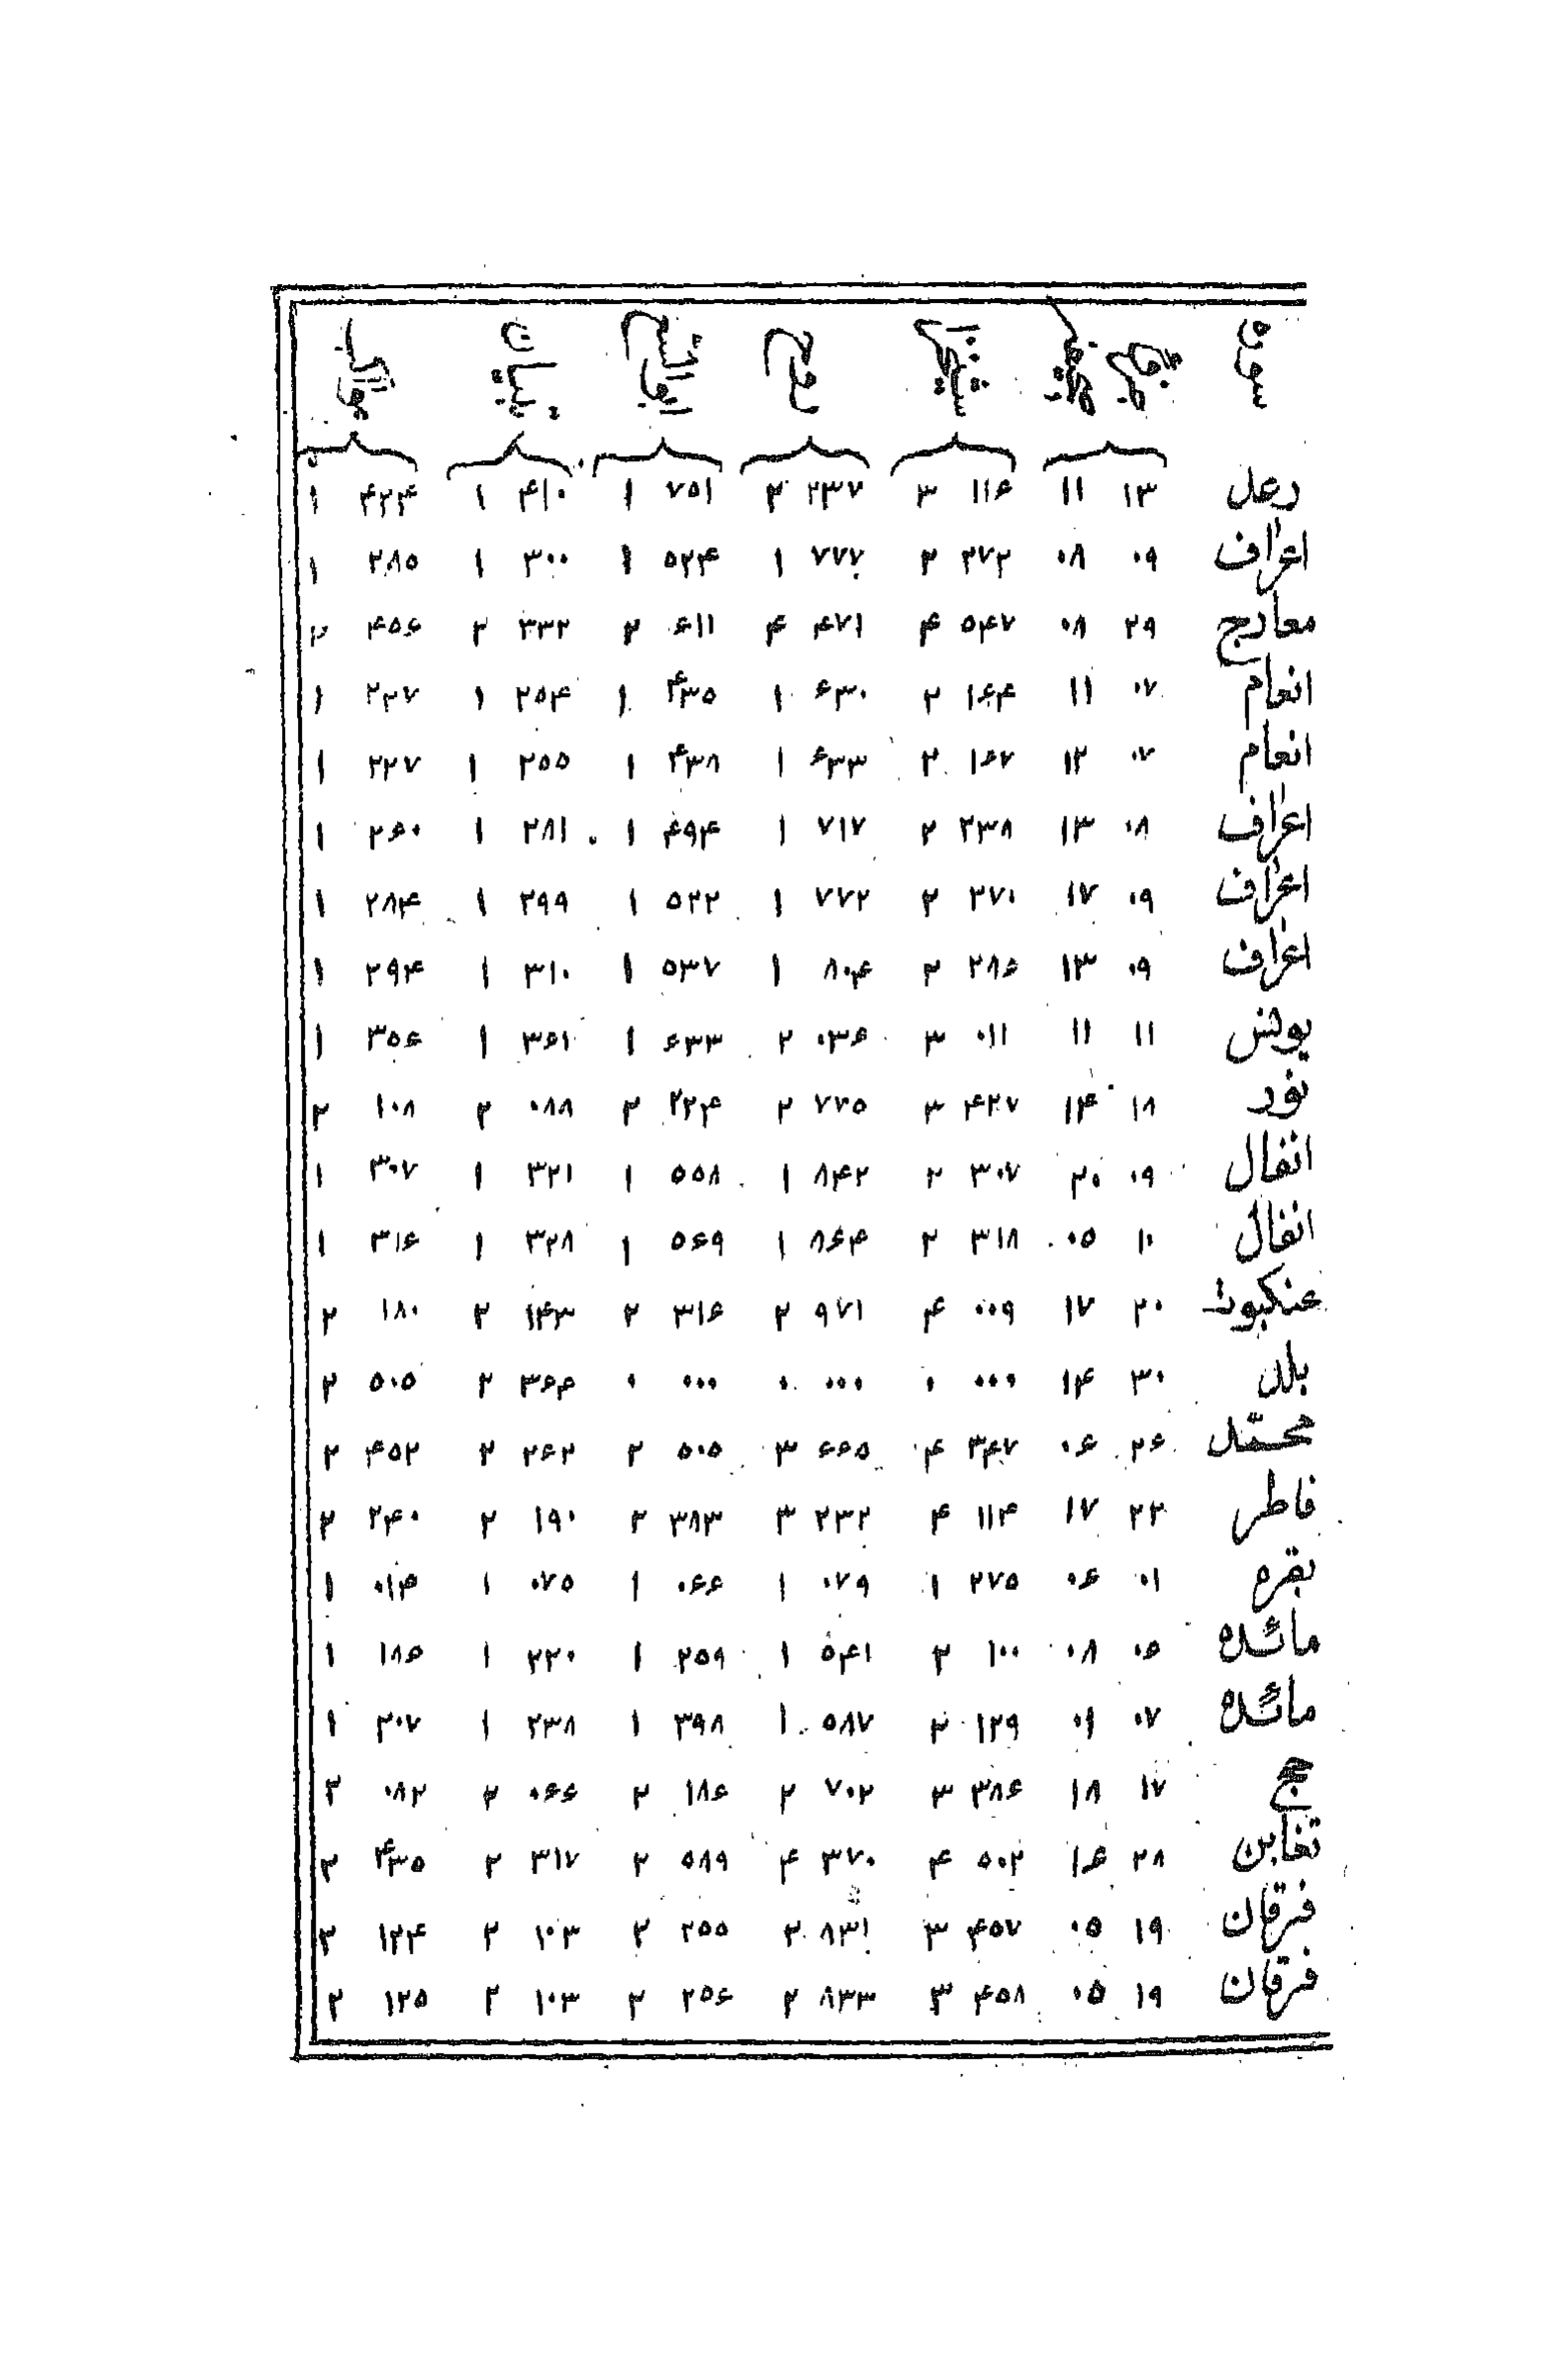 سوره
رعل ۱۳ ۱۱ ۱۱۶ ۳ ۲۳۷ ۲ ۷۵۱ ۱ ۴۱۰ ۱ ۴۲۴ ۱
اعراف ۰۹ ۰۸ ۲۷۲ ۲ ۷۷۷ ۱ ۵۲۴ ۱ ۳۰۰ ۱ ۲۸۵ ۱
معارج ۲۹ ۰۸ ۵۴۷ ۴ ۴۷۱ ۴ ۶۱۱ ۲ ۳۳۲ ۲ ۴۵۶ ۲
انعام ۰۷ ۱۱ ۱۶۴ ۲ ۶۳۰ ۱ ۴۳۵ ۱ ۲۵۴ ۱ ۲۲۷ ۱
انعام ۰۷ ۱۲ ۱۶۷ ۲ ۶۳۳ ۱ ۴۳۸ ۱ ۲۵۵ ۱ ۲۲۷ ۱
اعراف ۰۸ ۱۳ ۲۳۸ ۲ ۷۱۷ ۱ ۴۹۴ ۱ ۲۸۱ ۱ ۲۶۰ ۱
اعراف ۰۹ ۱۷ ۲۷۰ ۲ ۷۷۲ ۱ ۵۲۲ ۱ ۲۹۹ ۱ ۲۸۴ ۱
اعراف ۰۹ ۱۳ ۲۸۶ ۲ ۸۰۴ ۱ ۵۳۷ ۱ ۳۱۰ ۱ ۲۹۴ ۱
یونس ۱۱ ۱۱ ۰۱۱ ۳ ۰۳۶ ۲ ۶۳۳ ۱ ۳۶۱ ۱ ۳۵۶ ۱
نور ۱۸ ۱۴ ۴۲۷ ۳ ۷۷۵ ۲ ۲۲۴ ۲ ۰۸۸ ۲ ۱۰۸ ۲
انفال ۰۹ ۲۰ ۳۰۷ ۲ ۸۴۲ ۱ ۵۵۸ ۱ ۳۲۱ ۱ ۳۰۷ ۱
انفال ۱۰ ۰۵ ۳۱۸ ۲ ۸۶۴ ۱ ۵۶۹ ۱ ۳۲۸ ۱ ۳۱۶ ۱
عنکبوت ۲۰ ۱۷ ۰۰۹ ۴ ۹۷۱ ۲ ۳۱۶ ۲ ۱۴۳ ۲ ۱۸۰ ۲
بلد ۳۰ ۱۴ ۰۰۰ ۰ ۰۰۰ ۰ ۰۰۰ ۰ ۳۶۴ ۲ ۵۰۵ ۲
محمّد ۲۶ ۰۶ ۳۴۷ ۴ ۶۶۵ ۳ ۵۰۵ ۲ ۲۶۲ ۲ ۴۵۲ ۲
فاطر ۲۲ ۱۷ ۱۱۴ ۴ ۲۳۲ ۳ ۳۸۳ ۲ ۱۹۰ ۲ ۲۴۰ ۲
بقره ۰۱ ۰۶ ۲۷۵ ۱ ۰۷۹ ۱ ۰۶۶ ۱ ۰۷۵ ۱ ۰۱۴ ۱
مائده ۰۶ ۰۸ ۱۰۰ ۲ ۵۴۱ ۱ ۲۵۹ ۱ ۲۲۰ ۱ ۱۸۶ ۱
مائده ۰۷ ۰۱ ۱۲۹ ۲ ۵۸۷ ۱ ۳۹۸ ۱ ۲۳۸ ۱ ۲۰۷ ۱
حج ۱۷ ۱۸ ۳۸۶ ۳ ۷۰۲ ۲ ۱۸۶ ۲ ۰۶۶ ۲ ۰۸۲ ۲
تغابن ۲۸ ۱۶ ۵۰۲ ۴ ۳۷۰ ۴ ۵۸۹ ۲ ۳۱۷ ۲ ۴۳۵ ۲
فرقان ۱۹ ۰۵ ۴۵۷ ۳ ۸۳۱ ۲ ۲۵۵ ۲ ۱۰۳ ۲ ۱۲۴ ۲
فرقان ۱۹ ۰۵ ۴۵۸ ۳ ۸۳۳ ۲ ۲۵۶ ۲ ۱۰۳ ۲ ۱۲۵ ۲